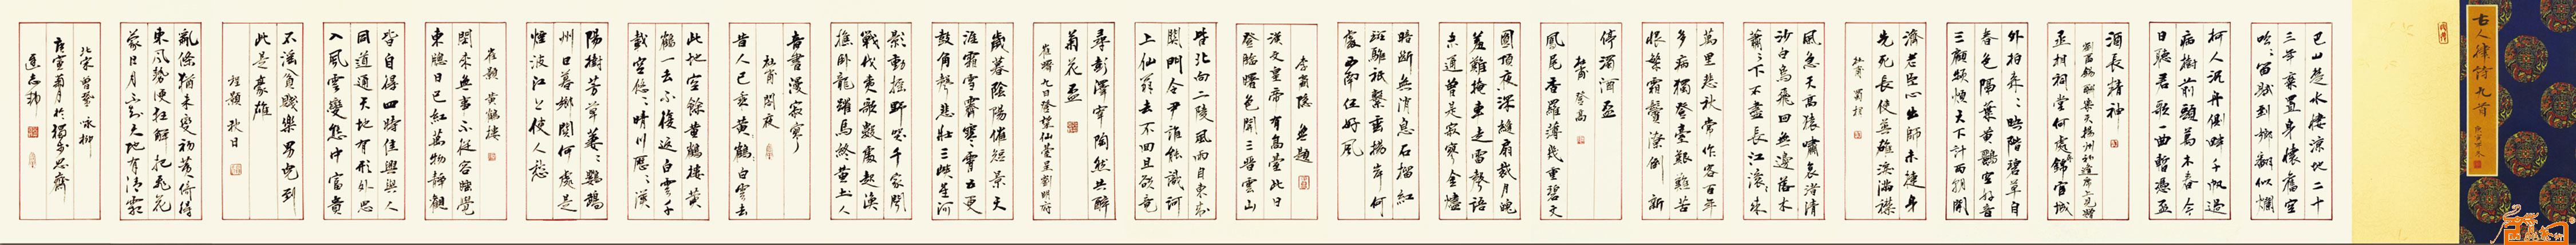 古人律诗九首
巴山楚水凄涼地二十
三年棄置身懷舊空
吟〻笛賦到鄉翻似爛
柯人沉舟側畔千帆過
病樹前頭萬木春今
日聽君歌一曲暫憑盃
酒長精神
劉禹錫酬樂天揚州初逢席上見贈
丞相祠堂何處尋錦官城
外柏森〻映階碧草自
春色隔葉黃鸝空好音
三顧頻煩天下計兩朝開
濟老臣心出師未捷身
先死長使英雄淚滿襟
杜甫 蜀相
風急天高猿嘯哀渚清
沙白鳥飛回無邊落木
蕭〻下不盡長江滾〻來
萬里悲秋常作客百年
多病獨登臺艱難苦
恨繁霜鬢潦倒新
停濁酒盃
杜甫 登高
鳳尾香羅薄幾重碧文
圓頂夜深縫扇裁月魄
羞難掩車走雷聲語
未通曾是寂寥金燼
暗斷無消息石榴紅
斑騅祇繫垂楊岸何
處西南任好風
李商隱 無題
漢文皇帝有高臺此日
登臨曙色開三晉雲山
皆北向二陵風雨自東來
關門令尹誰能識河
上仙翁去不回且欲竟
尋彭澤宰陶然共醉
菊花盃
崔曙 九日登望仙臺呈劉明府
歲暮陰陽催短景天
涯霜雪霽寒霄五更
鼓角聲悲壯三峽星河
影動搖野哭千家聞
戰伐夷歌數處起漁
樵臥龍躍馬終黃土人
音書漫寂寥
杜甫 閣夜
昔人已乘黃鶴白雲去
此地空餘黃鶴樓黃
鶴一去不復返白雲千
載空悠〻晴川歷〻漢
陽樹芳草萋〻鸚鵡
州日暮鄉關何處是
煙波江上使人愁
崔顥 黃鶴樓
閒來無事不從容睡覺
東牕日已紅萬物靜觀
皆自得四時佳興與人
同道通天地有形外思
入風雲變態中富貴
不淫貧賤樂男兒到
此是豪雄
程顥 秋日
亂條猶未變初黃倚得
東風勢便狂解把飛花
蒙日月不知天地有清霜
北宋曾鞏 咏柳
庚寅菊月於獨步思齋